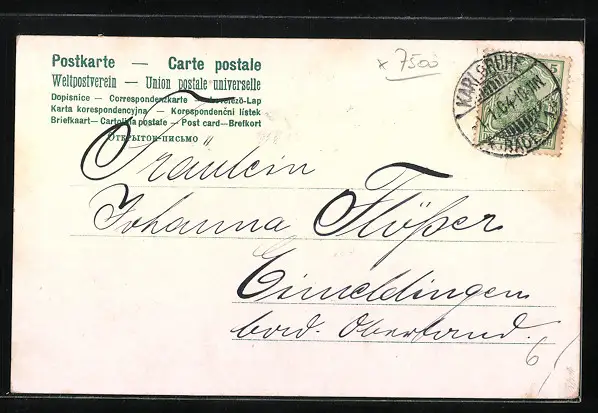 Postkarte — Carte postale
Weltpostverein — Union postale universelle
Dopisnice — Correspondenzkarte — Levelező-Lap
Karta korespondencyjna — Korespondenční lístek
Briefkaart — Cartolina postale — Post card — Brefkort
Открытое письмо
x 7500
5
KARLSRUHE
(BADEN) 1
Fräulein
Johanna Flößer
Eimeldingen
bad. Oberland.
6